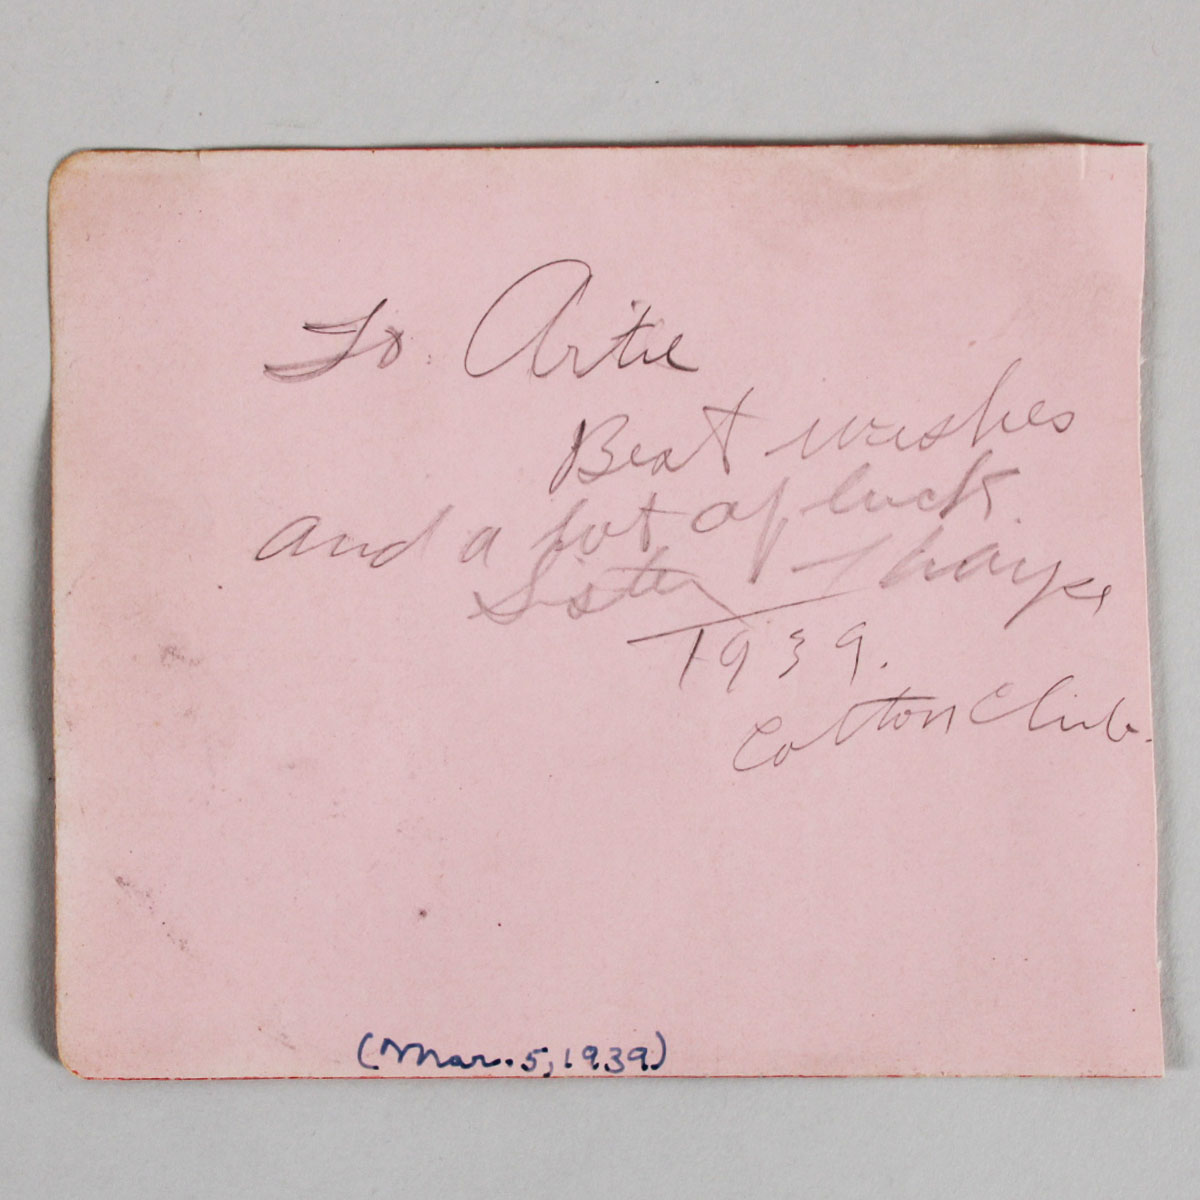 To. Artie
Best wishes
and a lot of luck.
Sister Tharpe
1939.
Cotton Club.
(Mar. 5, 1939)